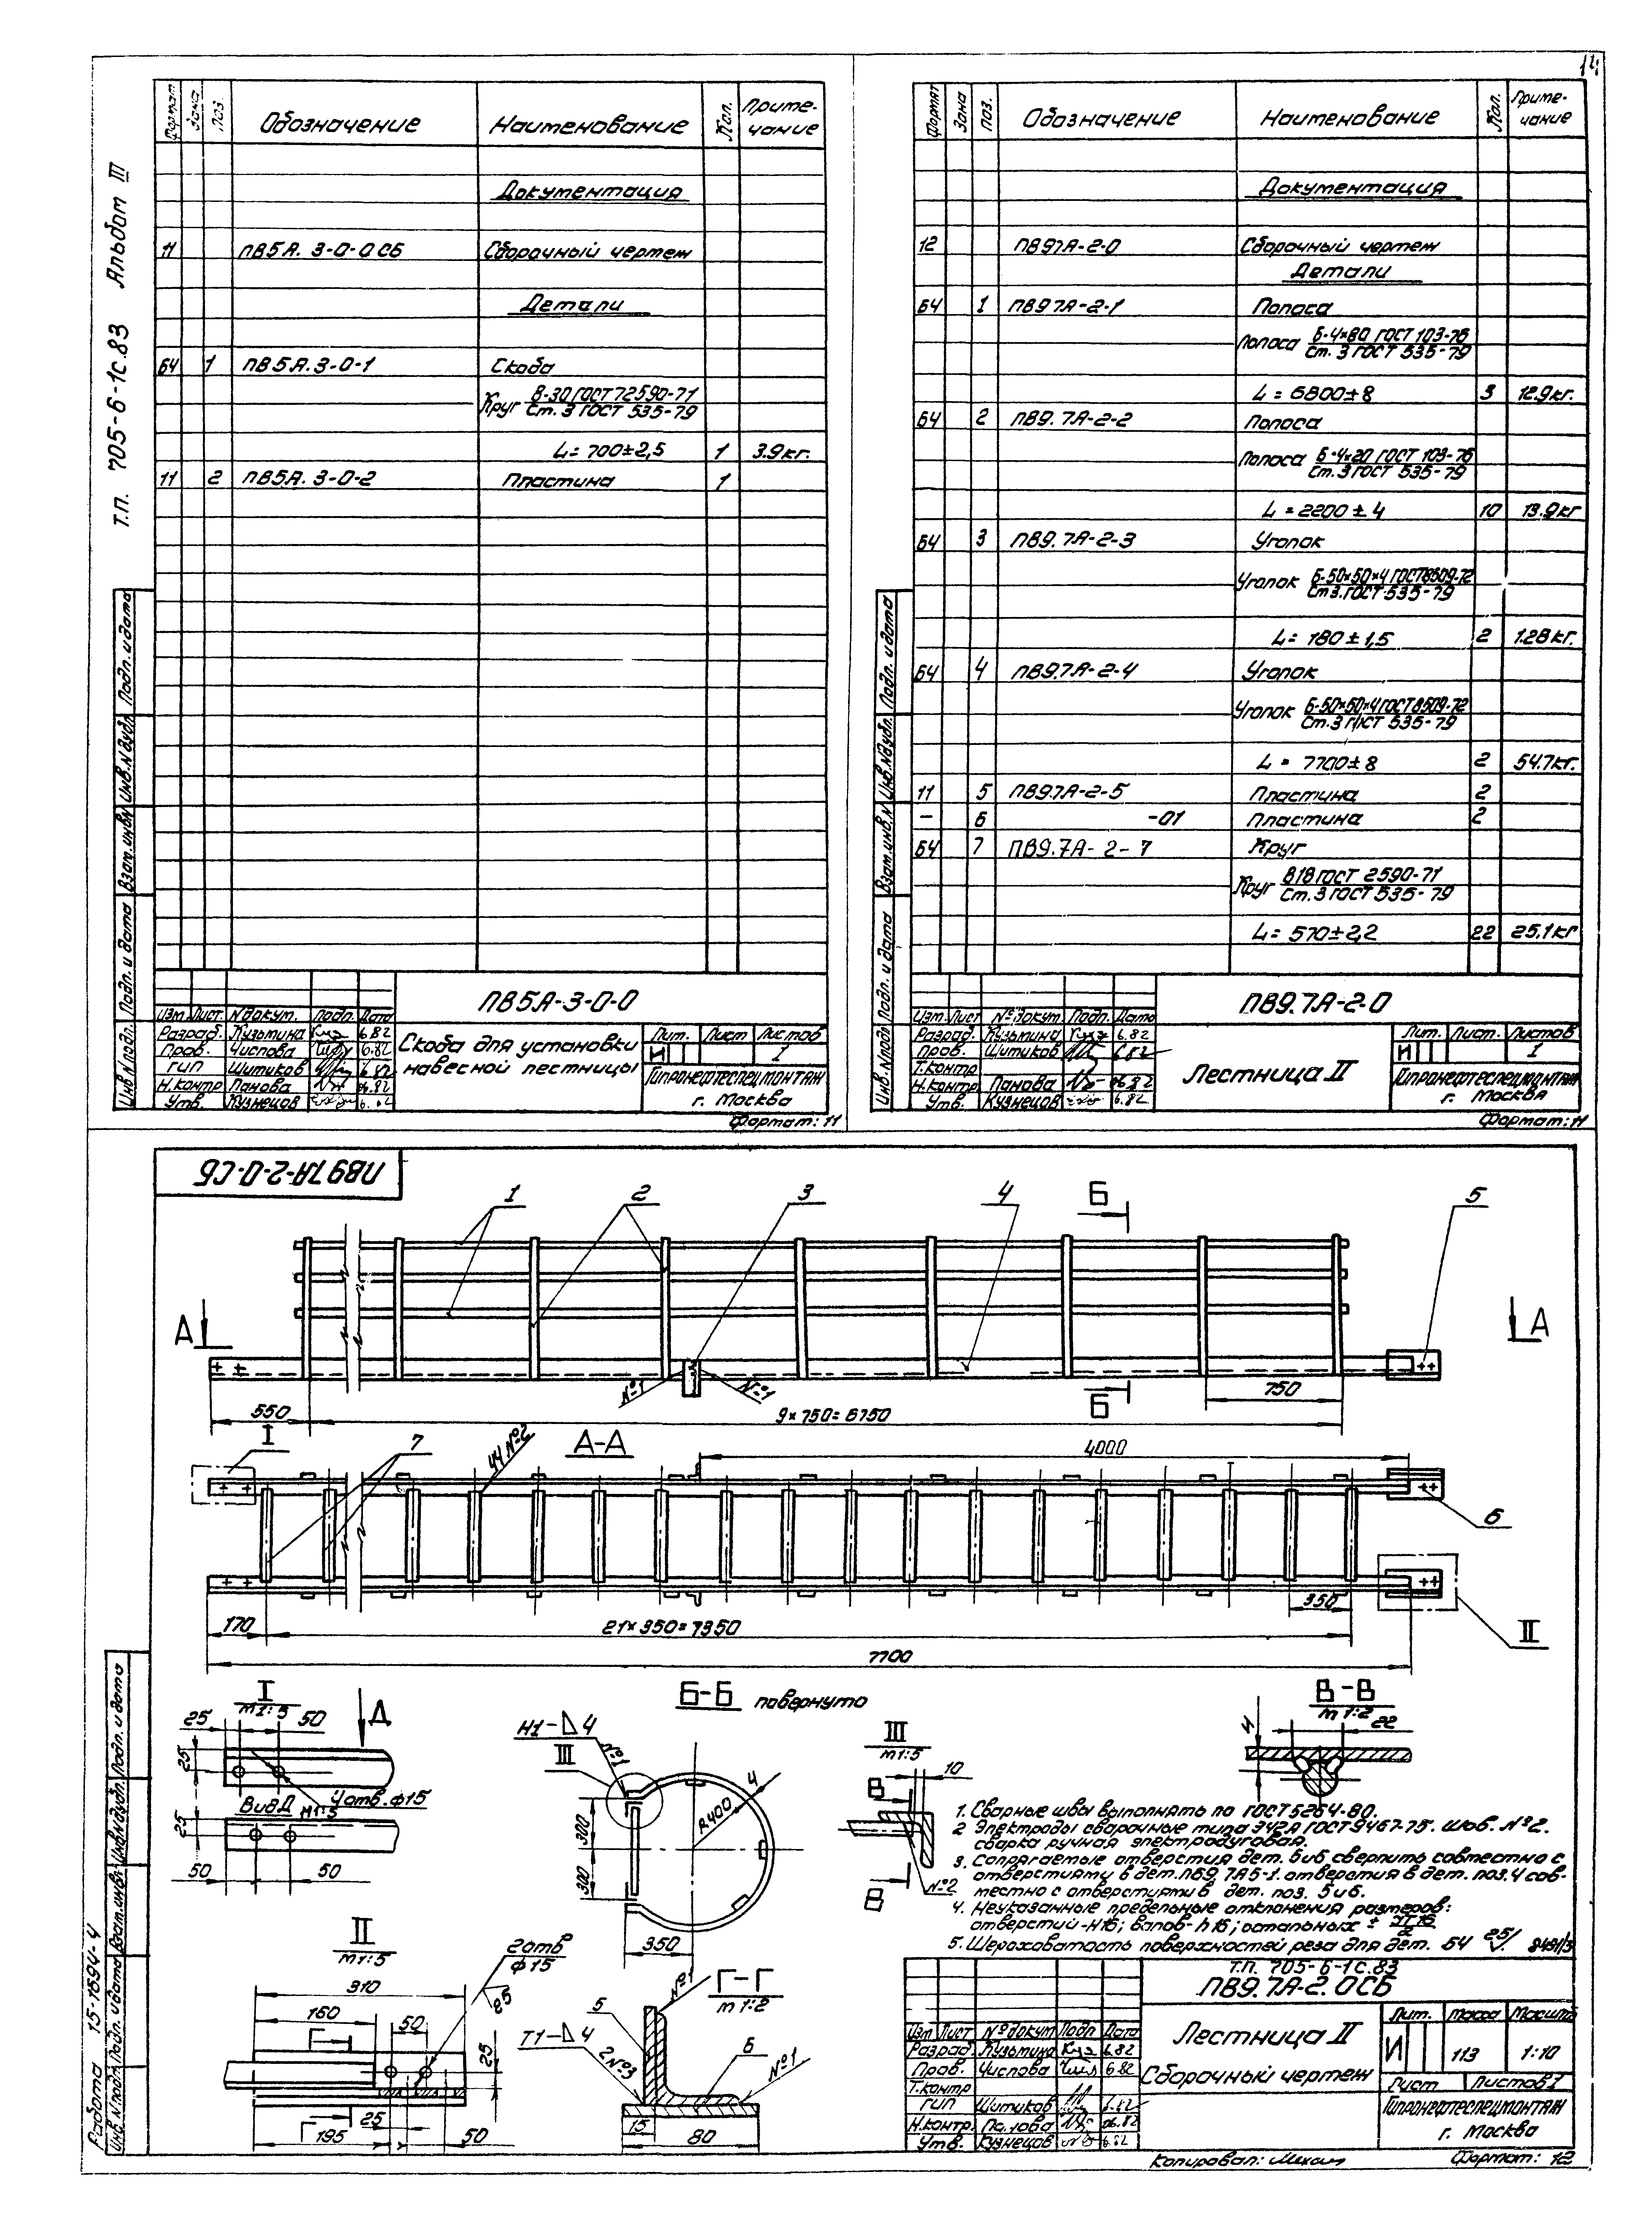 14
Т.П. 705-6-1с.83 Альбом III
Формат Зона Поз. Обозначение Наименование Кол. Приме-
чание
Документация
11 ПВ5А. 3-0-0СБ Сборочный чертеж
Детали
БЧ 1 ПВ5А.3-0-1 Скоба
Круг В-30 ГОСТ 72590-71
Ст. 3 ГОСТ 535-79
L= 700±2,5 1 3.9кг.
11 2 ПВ5А. 3-0-2 Пластина 1
Инв.№подл. Подп. и дата Взам.инв.№ Инв.№дубл. Подп. и дата
ПВ5А-3-0-0
Изм. Лист. №докум. Подп. Дата
Разраб. Кузьмина 6.82
Пров. Числова 6.82
ГИП Шитиков 6.82
Н.контр Панова 06.82
Утв. Кузнецов 6.82
Скоба для установки
навесной лестницы
Лит. Лист Листов
И 1
Гипронефтеспецмонтаж
г. Москва
Формат: 11
Формат Зона Поз. Обозначение Наименование Кол. Приме-
чание
Документация
12 ПВ97А-2-0 Сборочный чертеж
Детали
БЧ 1 ПВ97А-2-1 Полоса
Полоса Б-4×80 ГОСТ 103-76
Ст. 3 ГОСТ 535-79
L = 6800±8 3 12.9кг.
БЧ 2 ПВ9.7А-2-2 Полоса
Полоса Б-4×20 ГОСТ 103-76
Ст. 3 ГОСТ 535-79
L = 2200±4 10 13.9кг
БЧ 3 ПВ9.7А-2-3 Уголок
Уголок Б-50×50×4 ГОСТ8509-72
Ст3.ГОСТ.535-79
L= 180±1,5 2 1.28кг.
БЧ 4 ПВ9.7А-2-4 Уголок
Уголок Б-50×50×4 ГОСТ8509-72
Ст.3 ГОСТ 535-79
L = 7700±8 2 54.7кг.
11 5 ПВ9.7А-2-5 Пластина 2
- 6 -01 Пластина 2
БЧ 7 ПВ9.7А-2-7 Круг
Круг В18 ГОСТ 2590-71
Ст.3 ГОСТ 535-79
L= 570±2,2 22 25.1кг
Инв.№подл. Подп. и дата Взам.инв.№ Инв.№дубл. Подп. и дата
ПВ9.7А-2-0
Изм. Лист №докум Подп. Дата
Разраб. Кузьмина 6.82
Пров. Шитиков 6.82
Т.контр
Н.контр Панова 06.82
Утв. Кузнецов 6.82
Лестница II
Лит. Лист. Листов
И 1
Гипронефтеспецмонтаж
г. Москва
Формат: 11
ПВ97А-2-0-СБ
1 2 3 4 Б 5
А А
№1 №1
550 9×750=6750 Б 750
I 7 44 №2 А-А 4000
6
170 21×350=7350 350
II
7700
I
м1:5
25 50 Д
25
4отв.ф15
Вид Д
м1:5
25
50 50
Б-Б повернуто
Н1-⊿4
№1
III
4
R400
300
300
350
III
м1:5
10
В
№2
В
В-В
м 1:2
22
4
1. Сварные швы выполнять по ГОСТ5264-80.
2 Электроды сварочные типа Э42А ГОСТ9467-75. Шов. №2.
сварка ручная электродуговая.
3. Сопрягаемые отверстия дет. 5 и 6 сверлить совместно с
отверстиями в дет.ПВ9.7А5-1. отверстия в дет. поз.4 сов-
местно с отверстиями в дет. поз. 5 и 6.
4. Неуказанные предельные отклонения размеров:
отверстий-Н16; валов-h16; остальных ± IT16/2
5. Шероховатость поверхностей реза для дет. БЧ 25/
8491/3
II
м1:5
310
160
Г
50
2отв
ф15
25
25
Г
25
195 50
Г-Г
м 1:2
№1
5
Т1-⊿4
2№3
6
№1
15
80
Т.П. 705-6-1с.83
ПВ9.7А-2.0СБ
Изм Лист №докум Подп Дата
Разраб. Кузьмина 6.82
Пров. Числова 6.82
Т.контр
ГИП Шитиков 6.82
Н.контр. Панова 06.82
Утв. Кузнецов 6.82
Лестница II
Сборочный чертеж
Лит. Масса Масштаб
И 113 1:10
Лист Листов 1
Гипронефтеспецмонтаж
г. Москва
Копировал:
Формат: 12
Работа 15-1694-4
Инв.№подл. Подп. и дата Взам.инв.№ Инв.№дубл. Подп. и дата